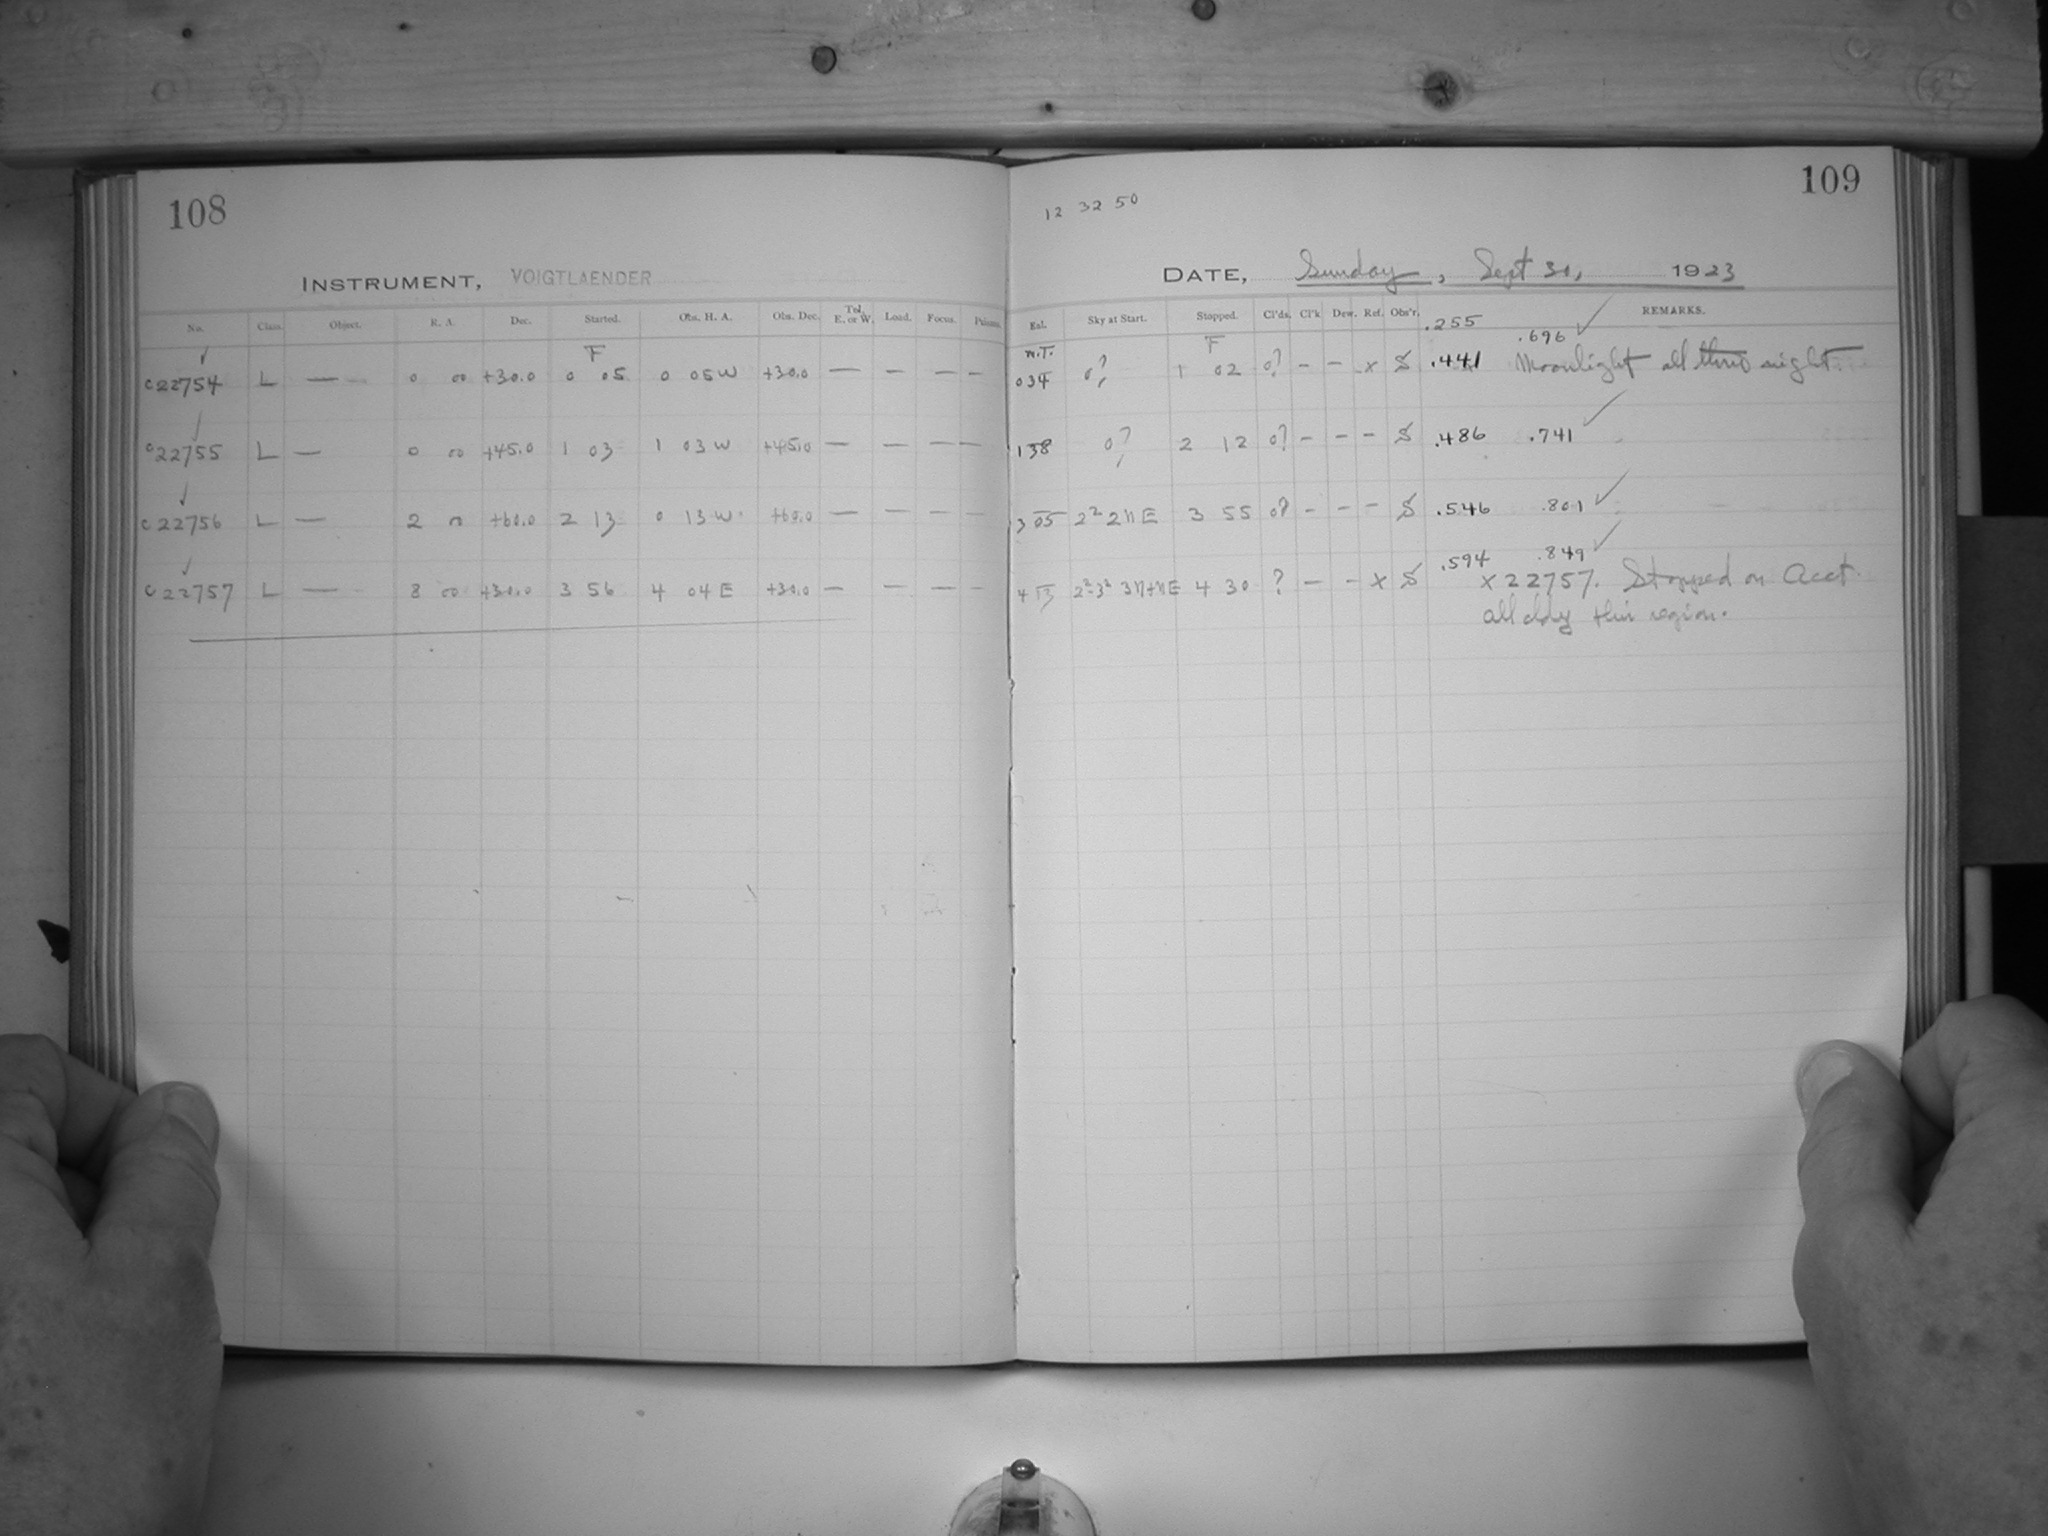 108
INSTRUMENT, VOIGTLAENDER
No. Class. Object. R. A. Dec. Started. Obs. H. A. Obs. Dec. Tel. E. or W. Load. Focus. Prisms.
F
c22754 L — 0 00 +30.0 0 05 0 05 W +30.0 — — — —
c22755 L — 0 00 +45.0 1 03 1 03 W +45.0 — — — —
c22756 L — 2 00 +60.0 2 13 0 13 W +60.0 — — — —
c22757 L — 8 00 +30.0 3 56 4 04 E +30.0 — — — —
109
12 32 50
DATE, Sunday, Sept 30, 1923
Exl. Sky at Start. Stopped. Cl'ds. Cl'k Dew. Ref. Obs'r. REMARKS.
.255
M.T. F .696
034 0? 1 02 0? – – x S .441 Moonlight all thro night.
138 0? 2 12 0? – – – S .486 .741
305 2² 2 N E 3 55 0? – – – S .546 .801
.594 .849
413 2²-3² 3N+NE 4 30 ? – – x S x 22757. Stopped on Acct.
all cldy this region.